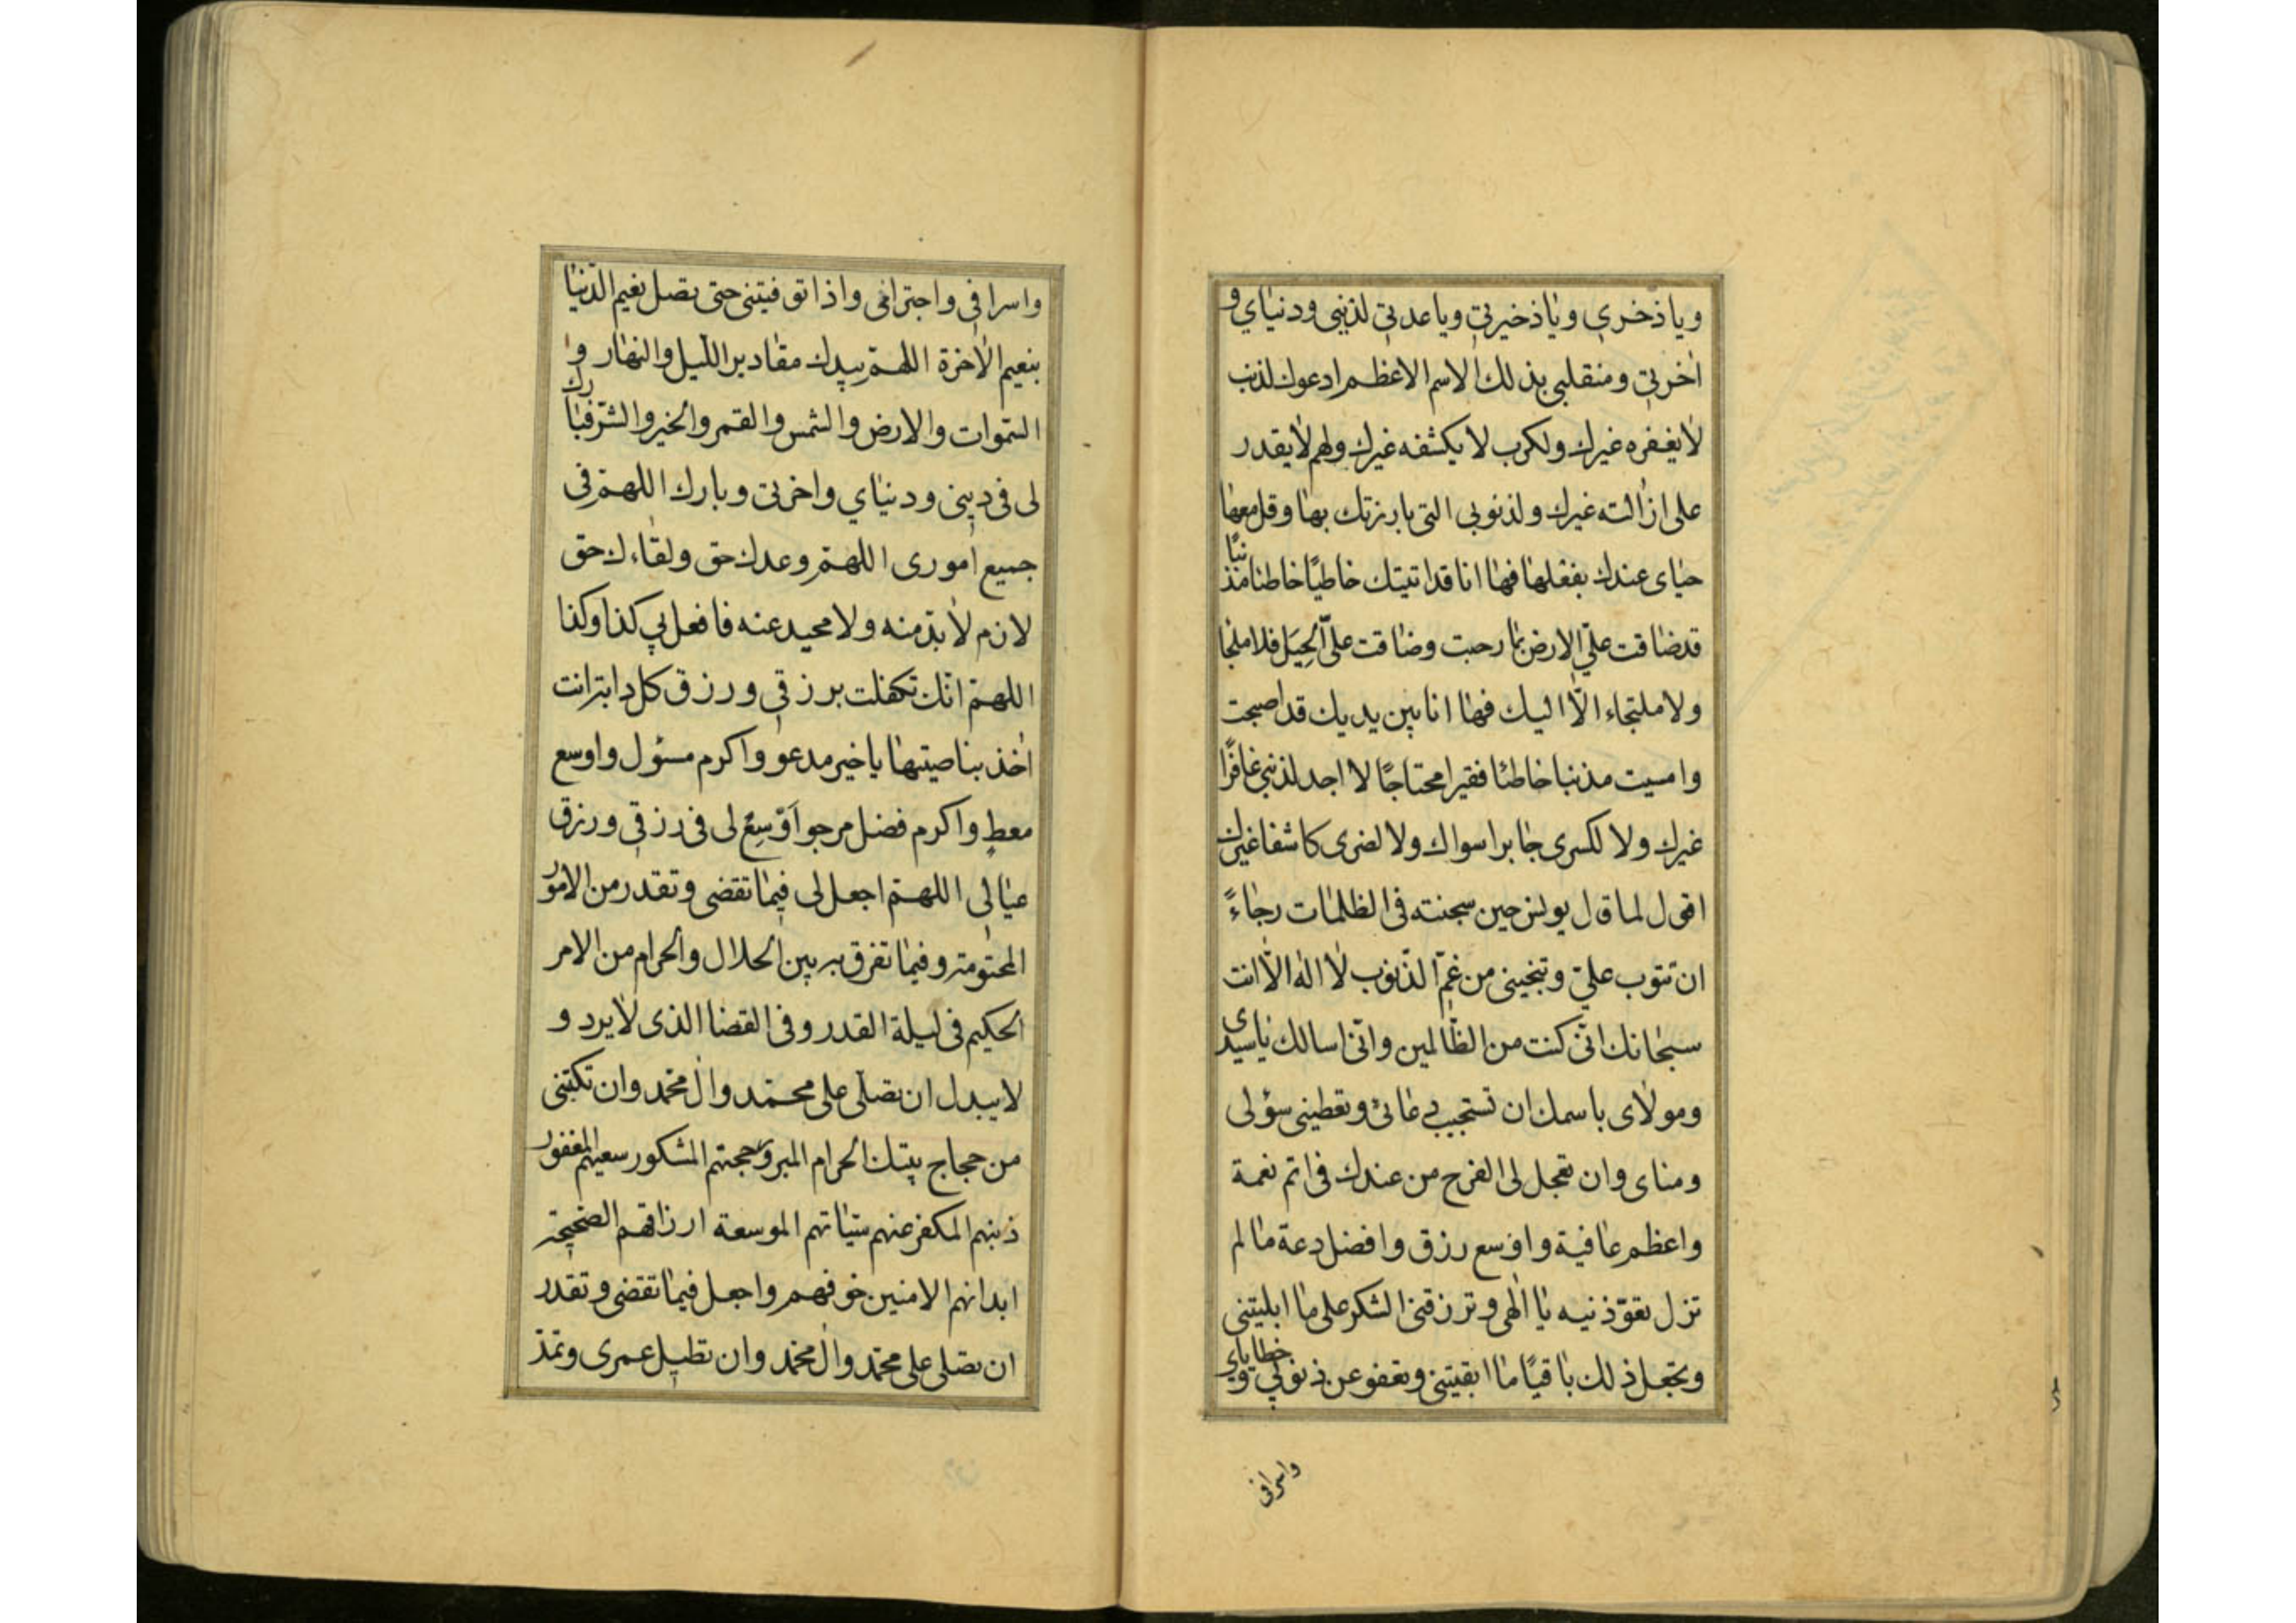 ويا ذخري ويا ذخيرتي ويا عدتي لديني ودنياي و
اخرتي ومنقلبي بذلك الاسم الاعظم ادعوك لذنب
لا يغفره غيرك ولكرب لا يكشفه غيرك ولهم لا يقدر
على ازالته غيرك ولذنوبي التي بارزتك بها وقل معها
حياى عندك بفعلها فها انا قد اتيتك خاطيًا خاطئا مذنبًا
قد ضاقت عليّ الارض بما رحبت وضاقت عليّ الحِيَل فلا ملجا
ولا ملتجاء الّا اليك فها انا بين يديك قد اصبحت
وامسيت مذنبا خاطئا فقيرا محتاجًا لا اجد لذنبي غافرًا
غيرك ولا لكسرى جابرا سواك ولا لضرى كاشفا غيرك
اقول لما قال يونس حين سجنته فى الظلمات رجاءً
ان تتوب عليّ وتنجيني من غمّ الذّنوب لا اله الّا انت
سبحانك انّى كنت من الظّالمين وانّى اسالك يا سيدى
ومولاى باسمك ان تستجيب دعائى وتعطينى سؤلى
ومناى وان تعجل لى الفرج من عندك فى اتم نعمة
واعظم عافية واوسع رزق وافضل دعة ما لم
تزل تعوّذنيه يا الهى وترزقنى الشكر على ما ابليتنى
وتجعل ذلك باقيًا ما ابقيتنى وتعفو عن ذنوبي وخطاياي
واسرافى
واسرافي واجترامى واذا توفيتنى حتى تصل نعيم الدّنيا
بنعيم الاخرة اللهمّ بيدك مقادير اللّيل والنهار و
السّموات والارض والشمس والقمر والخير والشرّ فبارك
لى فى ديني ودنياي واخرتى وبارك اللهمّ فى
جميع امورى اللهمّ وعدك حق ولقاءك حق
لازم لا بدّ منه ولا محيد عنه فافعل بي كذا وكذا
اللهمّ انّك تكفلت برزقي ورزق كل دابة انت
اخذ بناصيتها يا خير مدعو واكرم مسئول واوسع
معطٍ واكرم فضل مرجو اَوْسِعْ لى فى رزقي ورزق
عيالى اللهمّ اجعل لى فيما تقضى وتقدر من الامور
المحتومة وفيما تفرق به بين الحلال والحرام من الامر
الحكيم فى ليلة القدر وفى القضا الذى لا يرد و
لا يبدل ان تصلّى على محمّد وال محمّد وان تكتبنى
من حجاج بيتك الحرام المبرور حجتهم المشكور سعيهم المغفور
ذنبهم المكفر عنهم سيّاتهم الموسعة ارزاقهم الصّحيحة
ابدانهم الامنين خوفهم واجعل فيما تقضى وتقدر
ان تصلى على محمّد وال محمّد وان تطيل عمرى وتمدّ